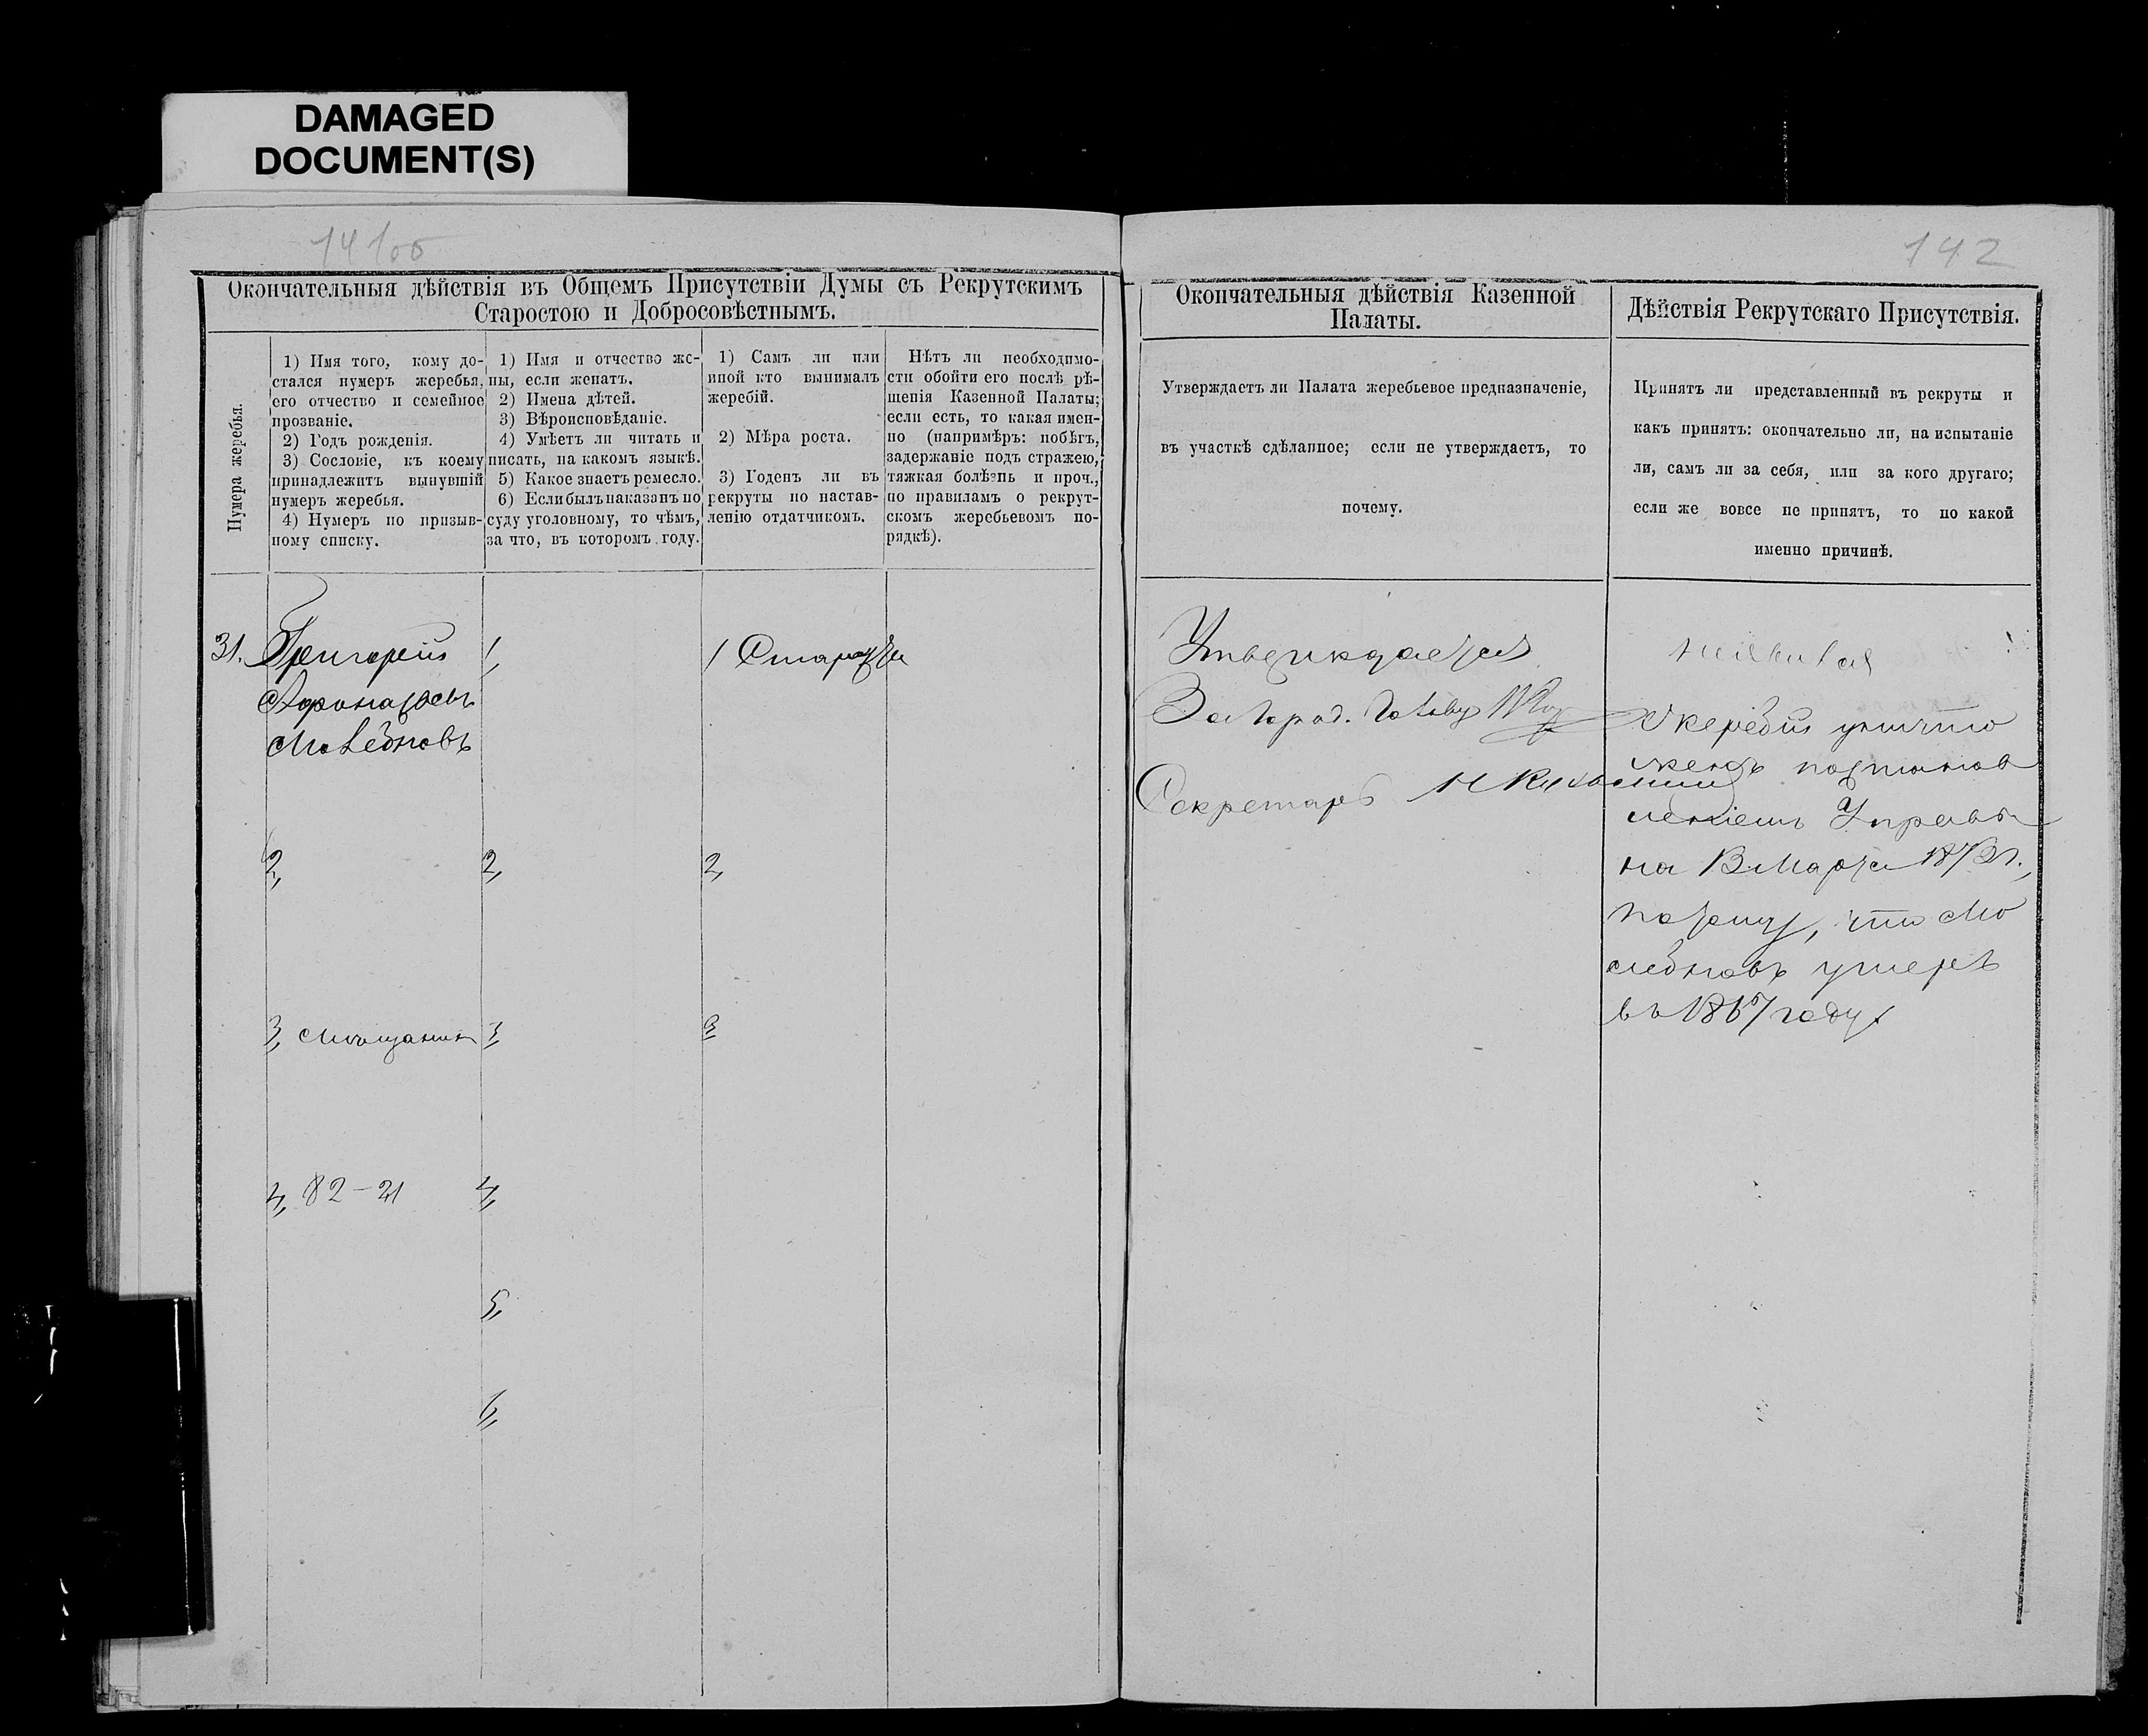 DAMAGED
DOCUMENT(S)
142
Окончательныя дѣйствія въ Общемъ Присутствіи Думы съ Рекрутскимъ
Старостою и Добросовѣстнымъ.
Нумера жеребья.
1) Имя того, кому до-
стался нумеръ жеребья,
его отчество и семейное
прозваніе.
2) Годъ рожденія.
3) Сословіе, къ коему
принадлежитъ вынувшій
нумеръ жеребья.
4) Нумеръ по призыв-
ному списку.
1) Имя и отчество же-
ны, если женатъ.
2) Имена дѣтей.
3) Вѣроисповѣданіе.
4) Умѣетъ ли читать и
писать, на какомъ языкѣ.
5) Какое знаетъ ремесло.
6) Если былъ наказанъ по
суду уголовному, то чѣмъ,
за что, въ которомъ году.
1) Самъ ли или
иной кто вынималъ
жеребій.
2) Мѣра роста.
3) Годенъ ли въ
рекруты по настав-
ленію отдатчикомъ.
Нѣтъ ли необходимо-
сти обойти его послѣ рѣ-
шенія Казенной Палаты;
если есть, то какая имен-
но (напримѣръ: побѣгъ,
задержаніе подъ стражею,
тяжкая болѣзнь и проч.,
по правиламъ о рекрут-
скомъ жеребьевомъ по-
рядкѣ).
31. Григорій
Афонасьевъ
Моледновъ
2,
3, Мѣщанинъ
4, 82-21
1,
2,
3,
4,
5,
6,
1 Староста
2,
3,
Окончательныя дѣйствія Казенной
Палаты.
Утверждаетъ ли Палата жеребьевое предназначеніе,
въ участкѣ сдѣланное; если не утверждаетъ, то
почему.
Утверждается
За Город. Голову
Секретарь Н
Дѣйствія Рекрутскаго Присутствія.
Принятъ ли представленный въ рекруты и
какъ принятъ: окончательно ли, на испытаніе
ли, самъ ли за себя, или за кого другаго;
если же вовсе не принятъ, то по какой
именно причинѣ.
неявился
Жеребій уничто
женъ постанов
леніемъ Управы
на 13 Марта 1873 г.,
потому, что Мо
ледновъ умеръ
въ 1867 году